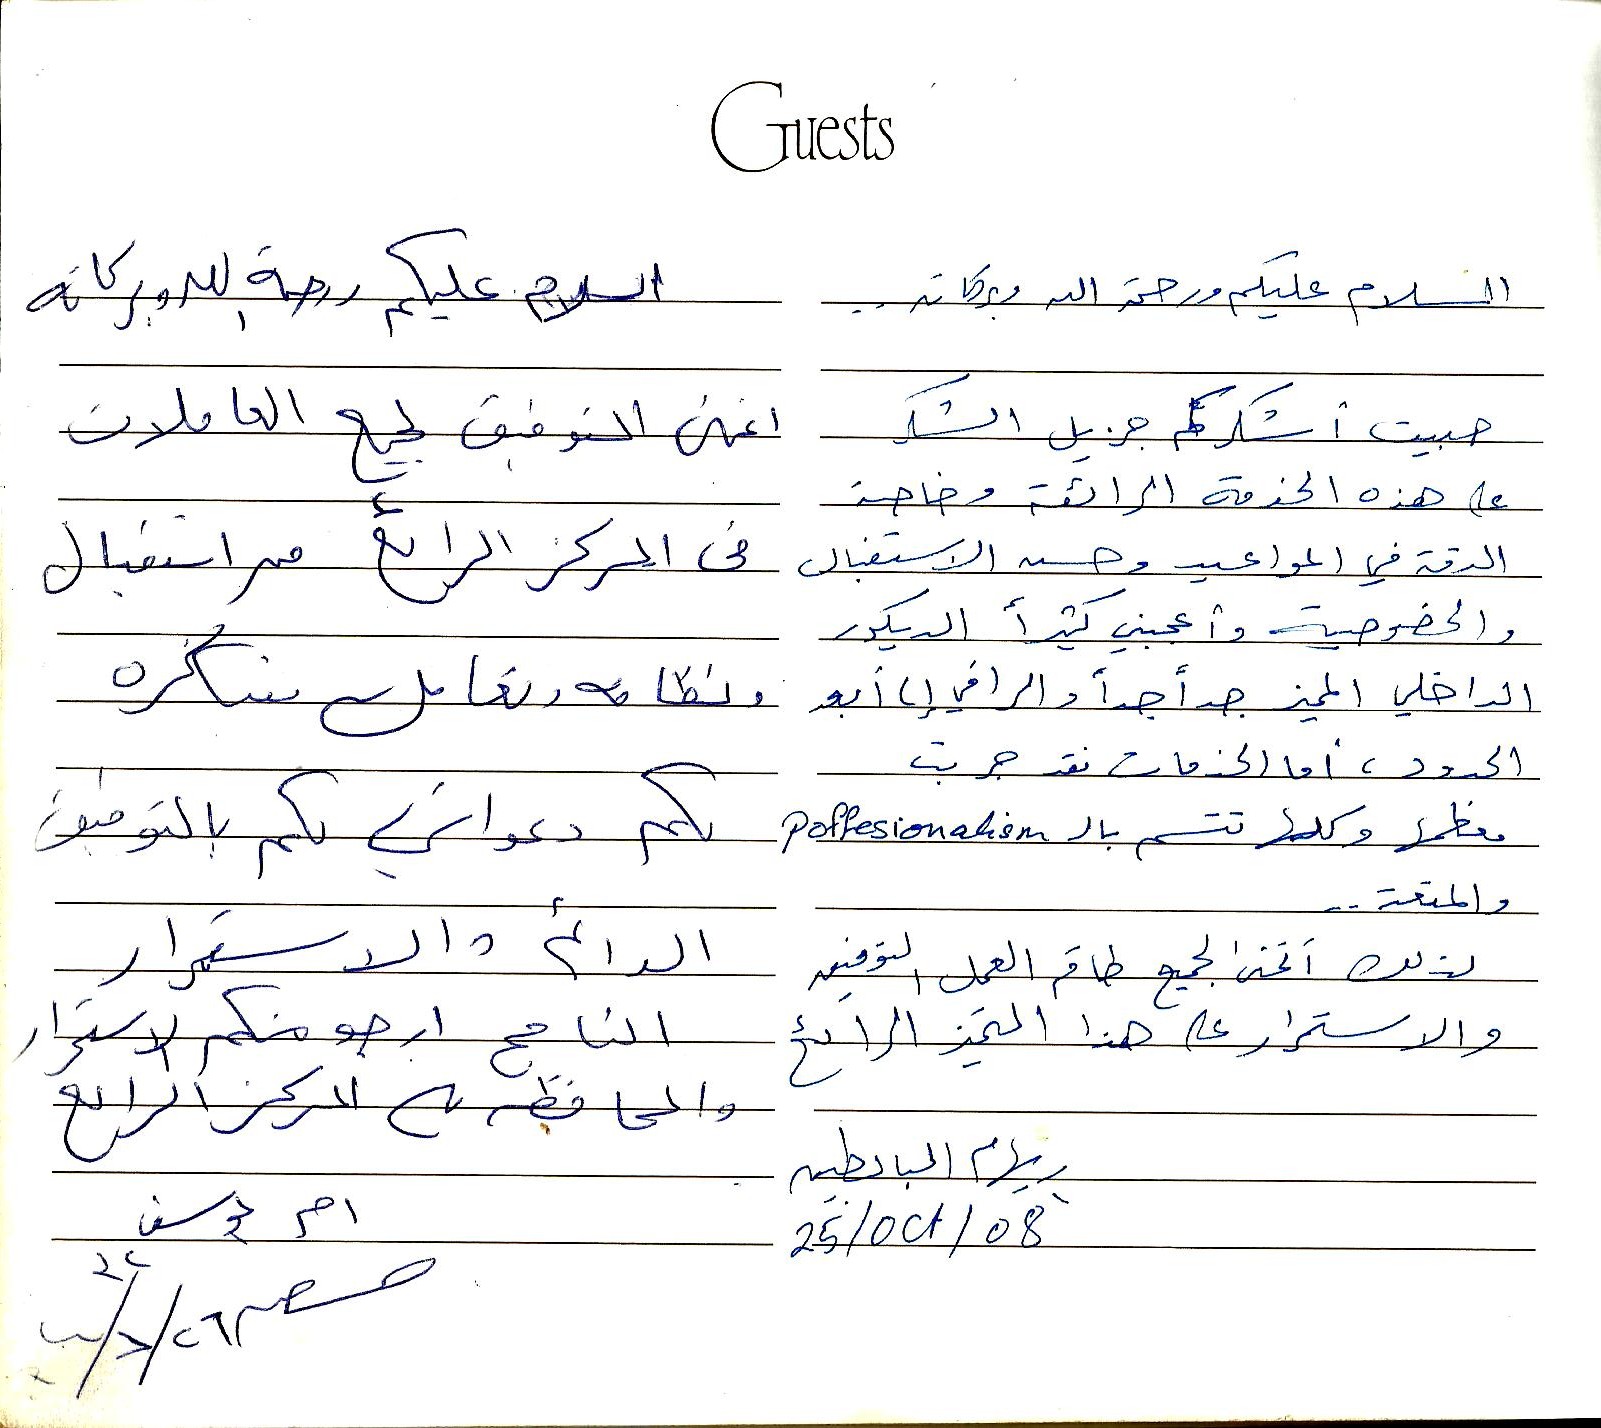 Guests
السلام عليكم ورحمة الله وبركاته ..
حبيت أشكركم جزيل الشكر
على هذه الخدمة الرائعة وخاصة
الدقة في المواعيد وحسن الاستقبال
والخصوصية وأعجبني كثيراً الديكور
الداخلي المميز جداً جداً والراقي إلى أبعد
الحدود، أما الخدمات فقد جربت
معظمها وكلها تتسم بالـ Poffesionalism
والمتعة ..
لذلك أتمنى لجميع طاقم العمل التوفيق
والاستمرار على هذا التميز الرائع
ريهام البابطين
25/Oct/08
السلام عليكم ورحمة الله وبركاته
اتمنى التوفيق لجميع العاملات
فى المركز الرائع من استقبال
ونظافه وتعامل شاكره
لكم دعواتي لكم بالتوفيق
الدائم والاستمرار
الناجح ارجو منكم الاستمرار
والمحافظه على المركز الرائع
ام يوسف